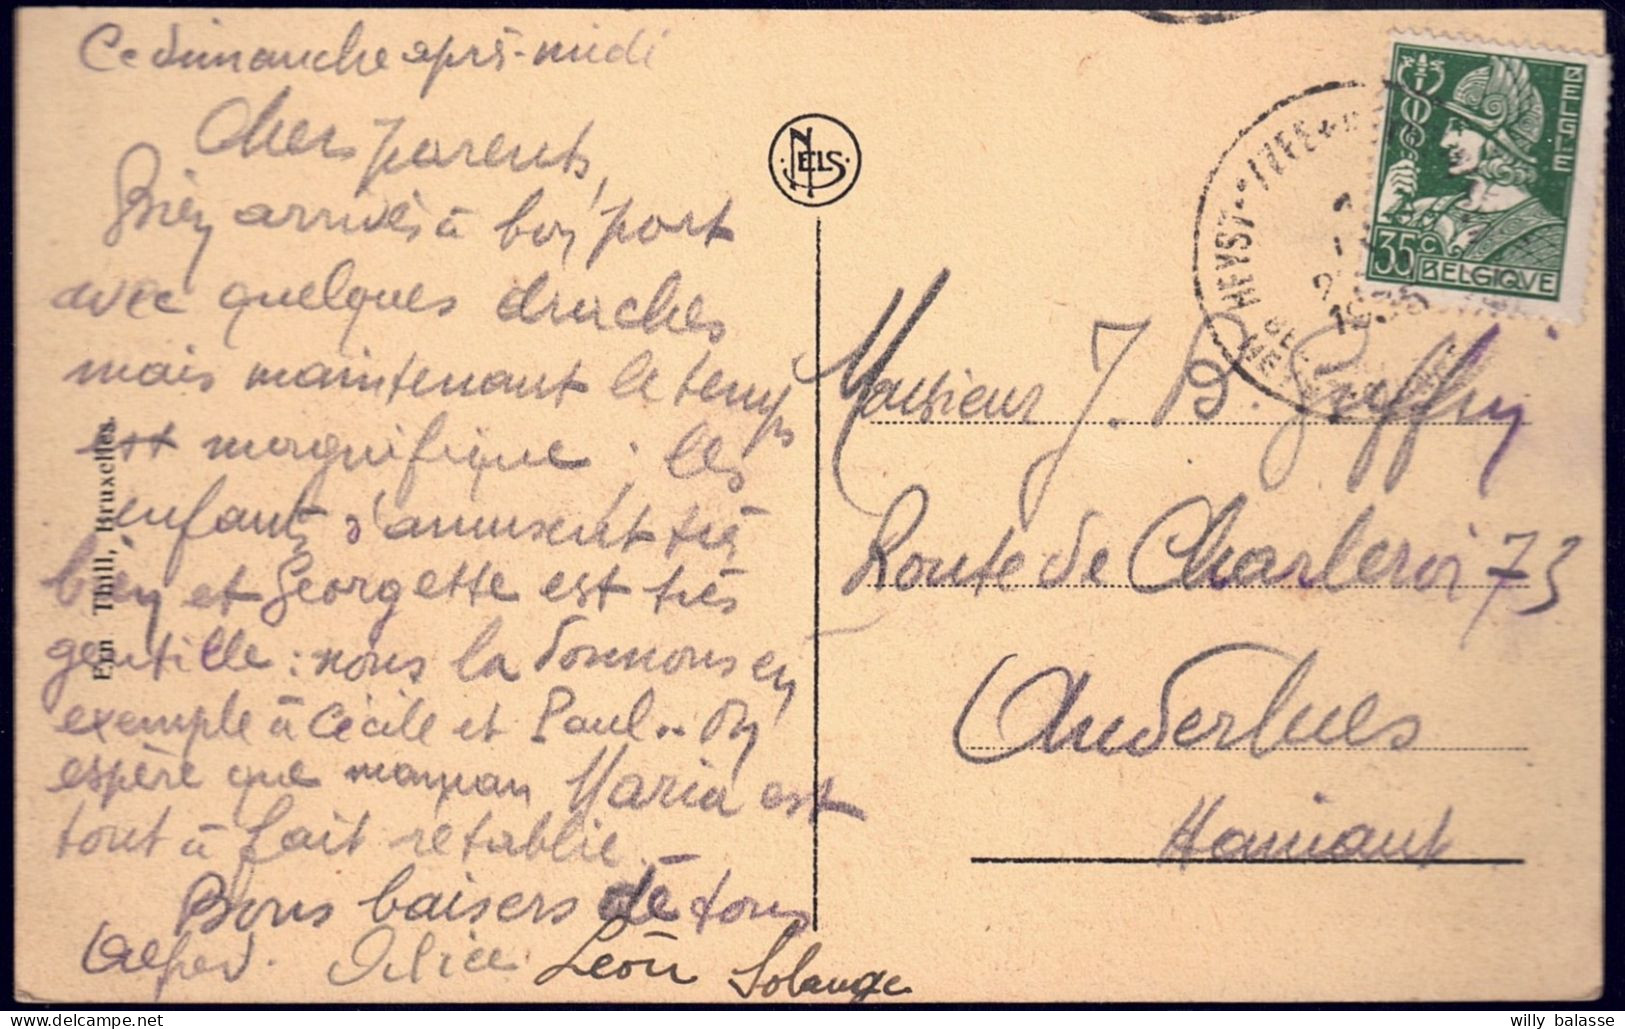 Ce dimanche après-midi
Chers parents,
Bien arrivés à bon port
avec quelques draches
mais maintenant le temps
est magnifique : les
enfants s'amusent très
bien et Georgette est très
gentille : nous la donnons en
exemple à Cécile et Paul.. On
espère que maman Maria est
tout à fait rétablie.
Bons baisers de tous
Alfred. Alice Léon Solange
Ern Thill, Bruxelles.
NELS
BELGIE
35c
BELGIQVE
HEYST
Monsieur J. B.
Route de Charleroi 73
Anderlues
Hainaut
willy balasse